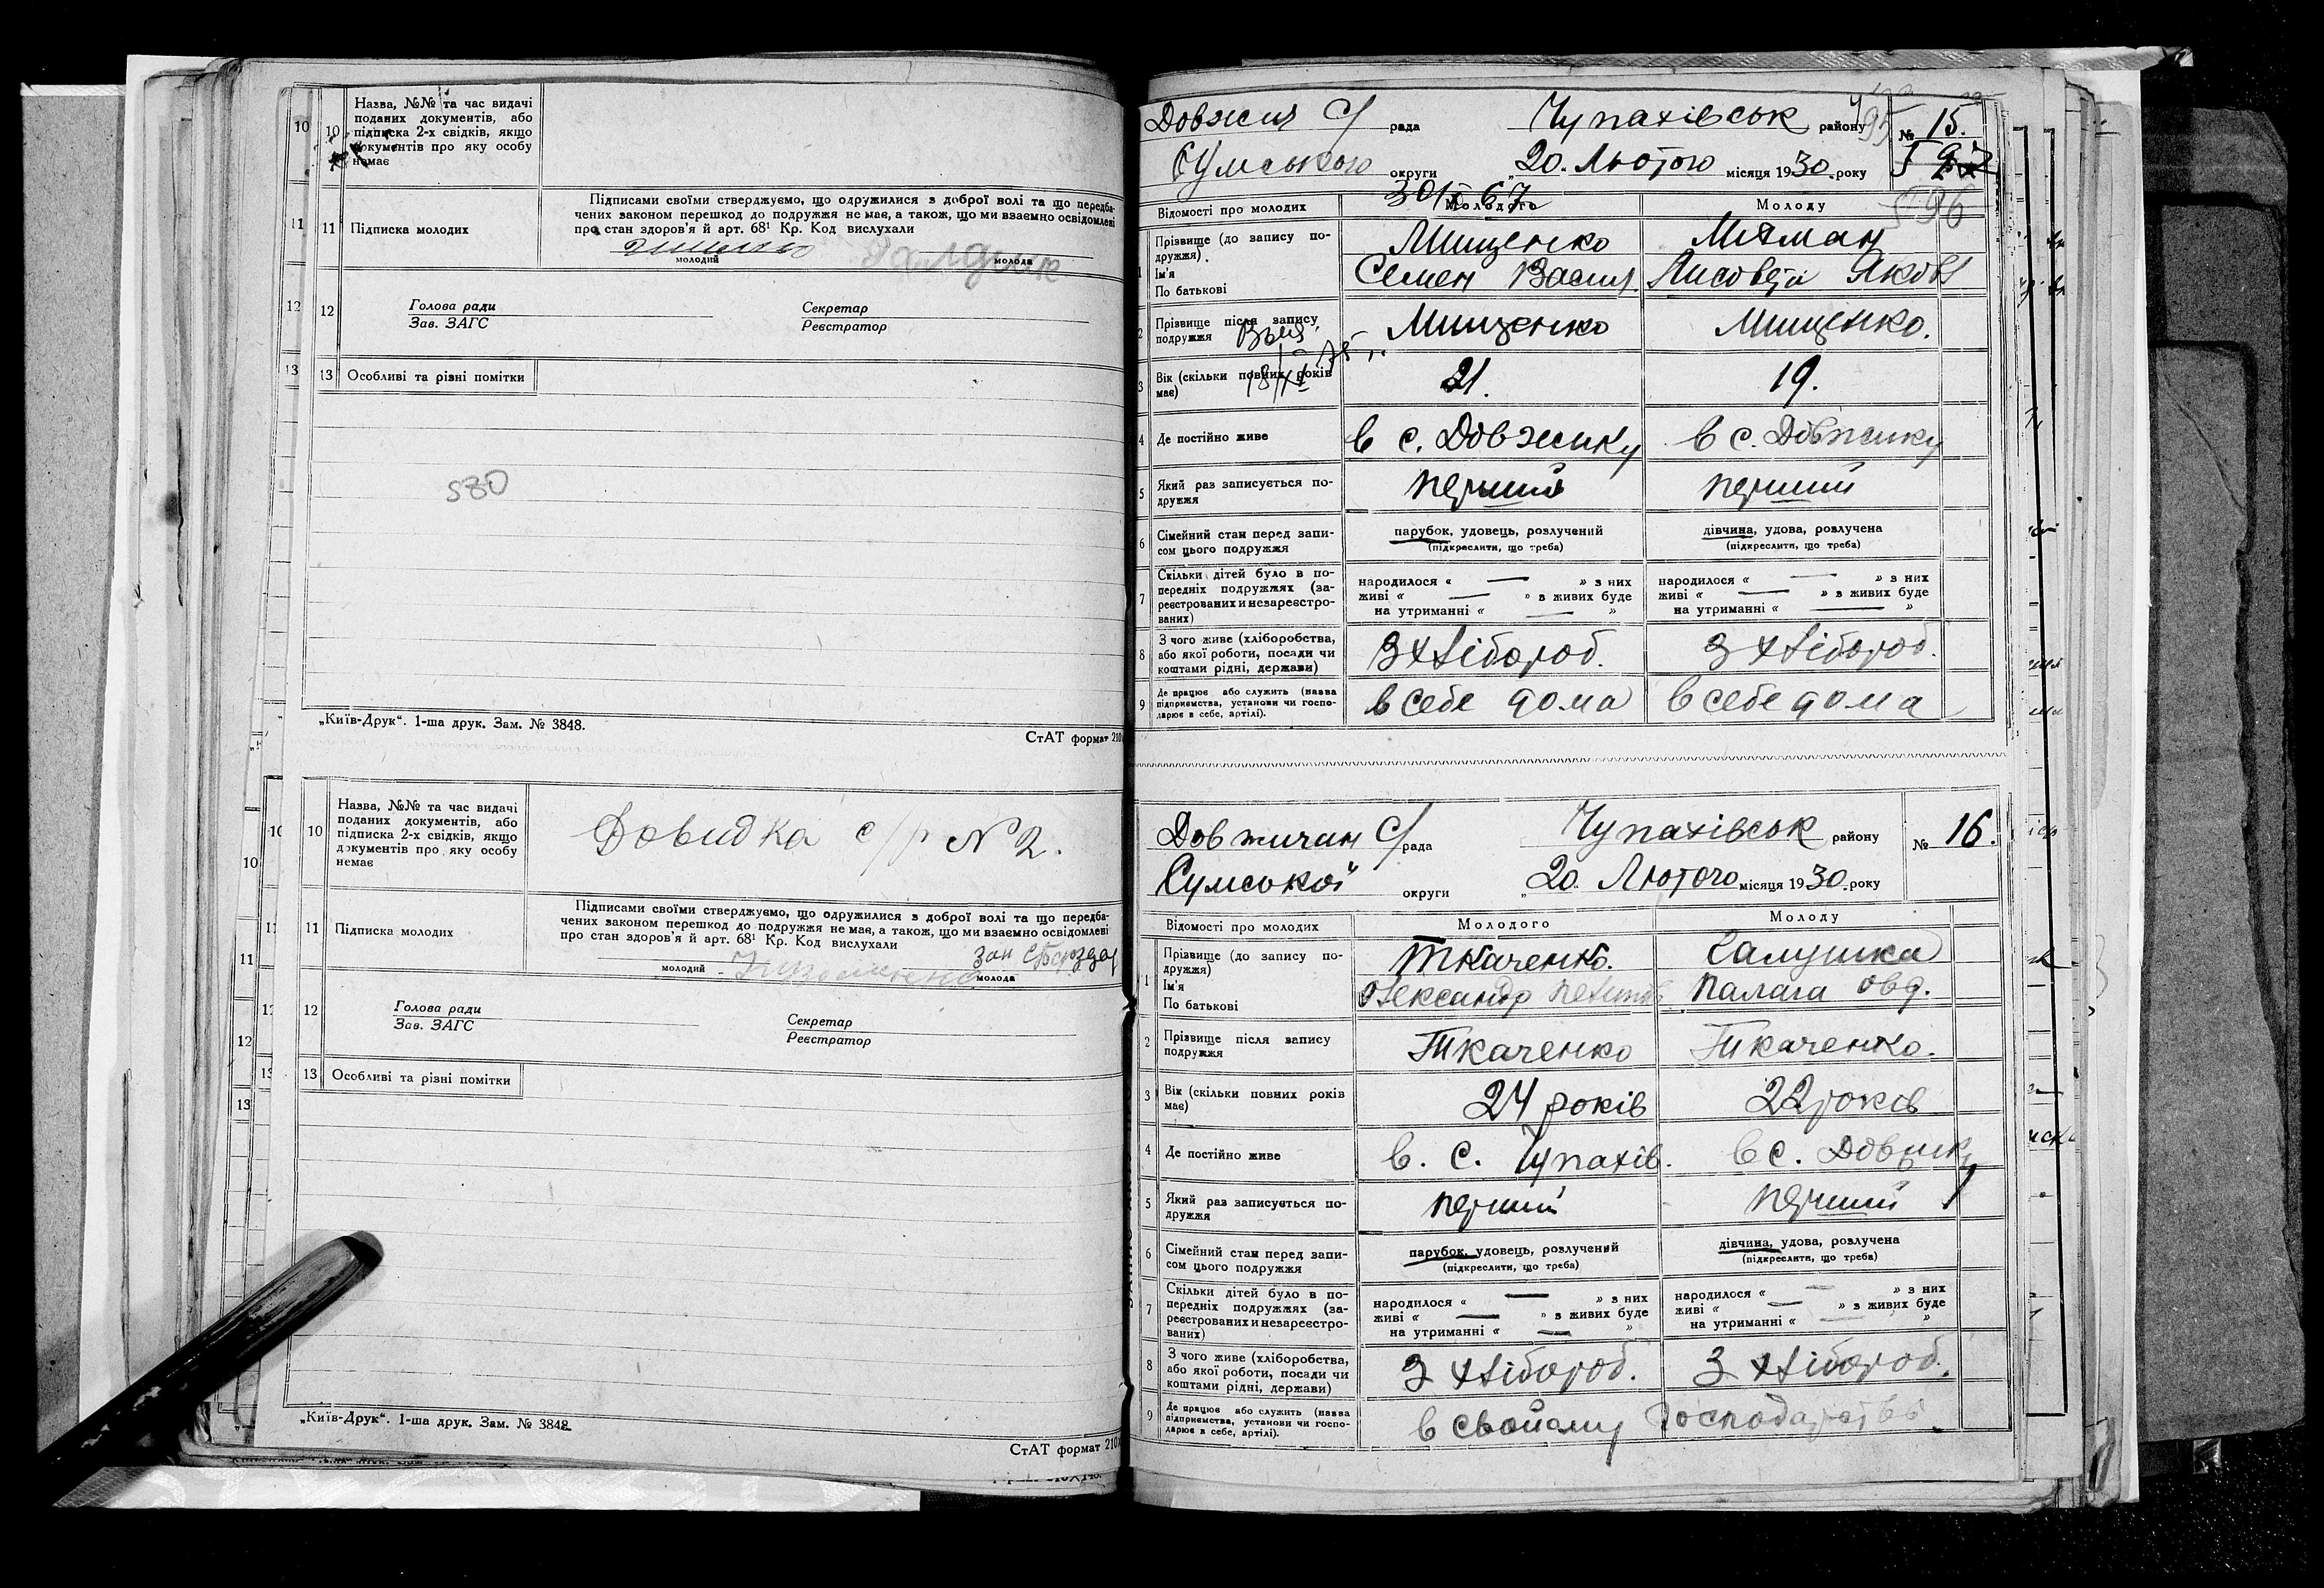 10 10 Назва, №№ та час видачі
поданих документів, або
підписка 2-х свідків, якщо
документів про яку особу
немає
11 11 Підписка молодих
Підписами своїми стверджуємо, що одружилися з доброї волі та що передба-
чених законом перешкод до подружжя не має, а також, що ми взаємно освідомлені
про стан здоров'я й арт. 68¹ Кр. Код вислухали
молодий молода
12 12 Голова ради Секретар
Зав. ЗАГС Реєстратор
13 13 Особливі та різні помітки
580
„Київ-Друк“. 1-ша друк. Зам. № 3848.
СтАТ формат 210
10 10 Назва, №№ та час видачі
поданих документів, або
підписка 2-х свідків, якщо
документів про яку особу
немає
Довидка с/р № 2.
11 11 Підписка молодих
Підписами своїми стверджуємо, що одружилися з доброї волі та що передба-
чених законом перешкод до подружжя не має, а також, що ми взаємно освідомлені
про стан здоров'я й арт. 68¹ Кр. Код вислухали
молодий молода
12 Голова ради Секретар
Зав. ЗАГС Реєстратор
13 Особливі та різні помітки
„Київ-Друк“. 1-ша друк. Зам. № 3848
СтАТ формат 210
Довжич С/ рада Чупахівськ району № 15.
Сумського округи „20. Лютого місяця 1930 року
596
Відомості про молодих Молодого Молоду
1 Прізвище (до запису по-
дружжя)
Ім'я
По батькові
Мищенко
Семен Васил.
Лисовета Яковл
2 Прізвище після запису
подружжя
Мищенко Мищенко.
3 Вік (скільки повних років
має)
21. 19.
4 Де постійно живе в с. Довжику в с. Довжику
5 Який раз записується по-
дружжя
перший перший
6 Сімейний стан перед запи-
сом цього подружжя
парубок, удовець, розлучений
(підкреслити, що треба)
дівчина, удова, розлучена
(підкреслити, що треба)
7 Скільки дітей було в по-
передніх подружжях (за-
реєстрованих и незареєстро-
ваних)
народилося « — » з них
живі « — » з живих буде
на утриманні « — »
народилося « — » з них
живі « — » з живих буде
на утриманні « — »
8 З чого живе (хліборобства,
або якої роботи, посади чи
коштами рідні, держави)
З хлібороб. З хлібороб.
9 Де працює або служить (назва
підприємства, установи чи госпо-
дарює в себе, артілі).
в себе дома в себе дома
Довжичан С/ рада Чупахівськ району № 16.
Сумської округи „20. Лютого місяця 1930 року
Відомості про молодих Молодого Молоду
1 Прізвище (до запису по-
дружжя)
Ім'я
По батькові
Ткаченко. Галушка
Олександр Палага Овд.
2 Прізвище після запису
подружжя
Ткаченко Ткаченко.
3 Вік (скільки повних років
має)
24 років 22 років
4 Де постійно живе в. с. Чупахів. в с. Довжику
5 Який раз записується по-
дружжя
перший перший
6 Сімейний стан перед запи-
сом цього подружжя
парубок, удовець, розлучений
(підкреслити, що треба)
дівчина, удова, розлучена
(підкреслити, що треба)
7 Скільки дітей було в по-
передніх подружжях (за-
реєстрованих и незареєстро-
ваних)
народилося « — » з них
живі « — » з живих буде
на утриманні « — »
народилося « — » з них
живі « — » з живих буде
на утриманні « — »
8 З чого живе (хліборобства,
або якої роботи, посади чи
коштами рідні, держави)
З хлібороб. З хлібороб.
9 Де працює або служить (назва
підприємства, установи чи госпо-
дарює в себе, артілі).
в свойому господарстві.